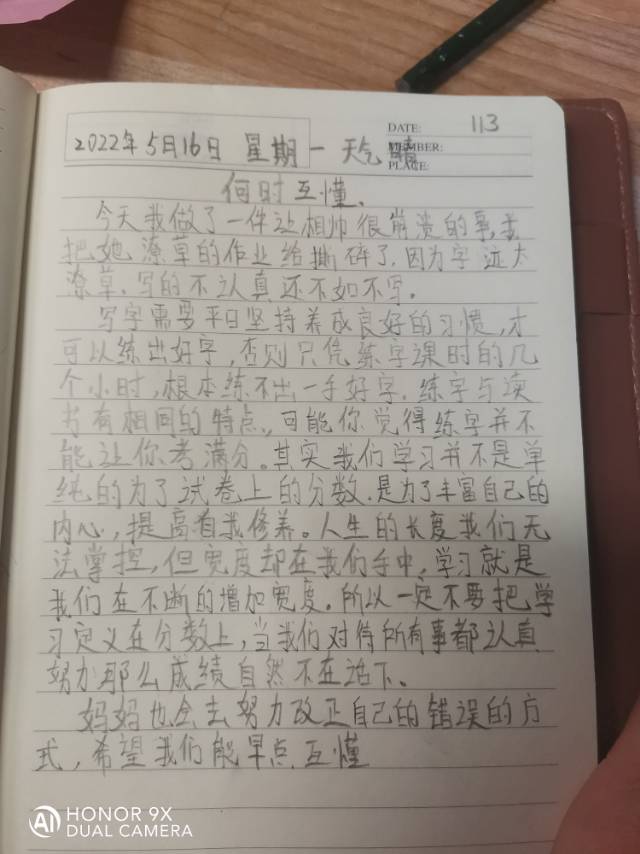 113
DATE:
MEMBER:
PLACE:
2022年5月16日 星期一 天气 晴
何时互懂.
今天我做了一件让相帅很崩溃的事,我
把她潦草的作业给撕碎了,因为字迹太
潦草.写的不认真还不如不写.
写字需要平日坚持养成良好的习惯,才
可以练出好字,否则只凭练字课时的几
个小时,根本练不出一手好字.练字与读
书有相同的特点,可能你觉得练字并不
能让你考满分。其实我们学习并不是单
纯的为了试卷上的分数.是为了丰富自己的
内心,提高自我修养。人生的长度我们无
法掌控,但宽度却在我们手中,学习就是
我们在不断的增加宽度.所以一定不要把学
习定义在分数上,当我们对待所有事都认真
努力那么成绩自然不在话下、
妈妈也会去努力改正自己的错误的方
式,希望我们能早点互懂
HONOR 9X
DUAL CAMERA